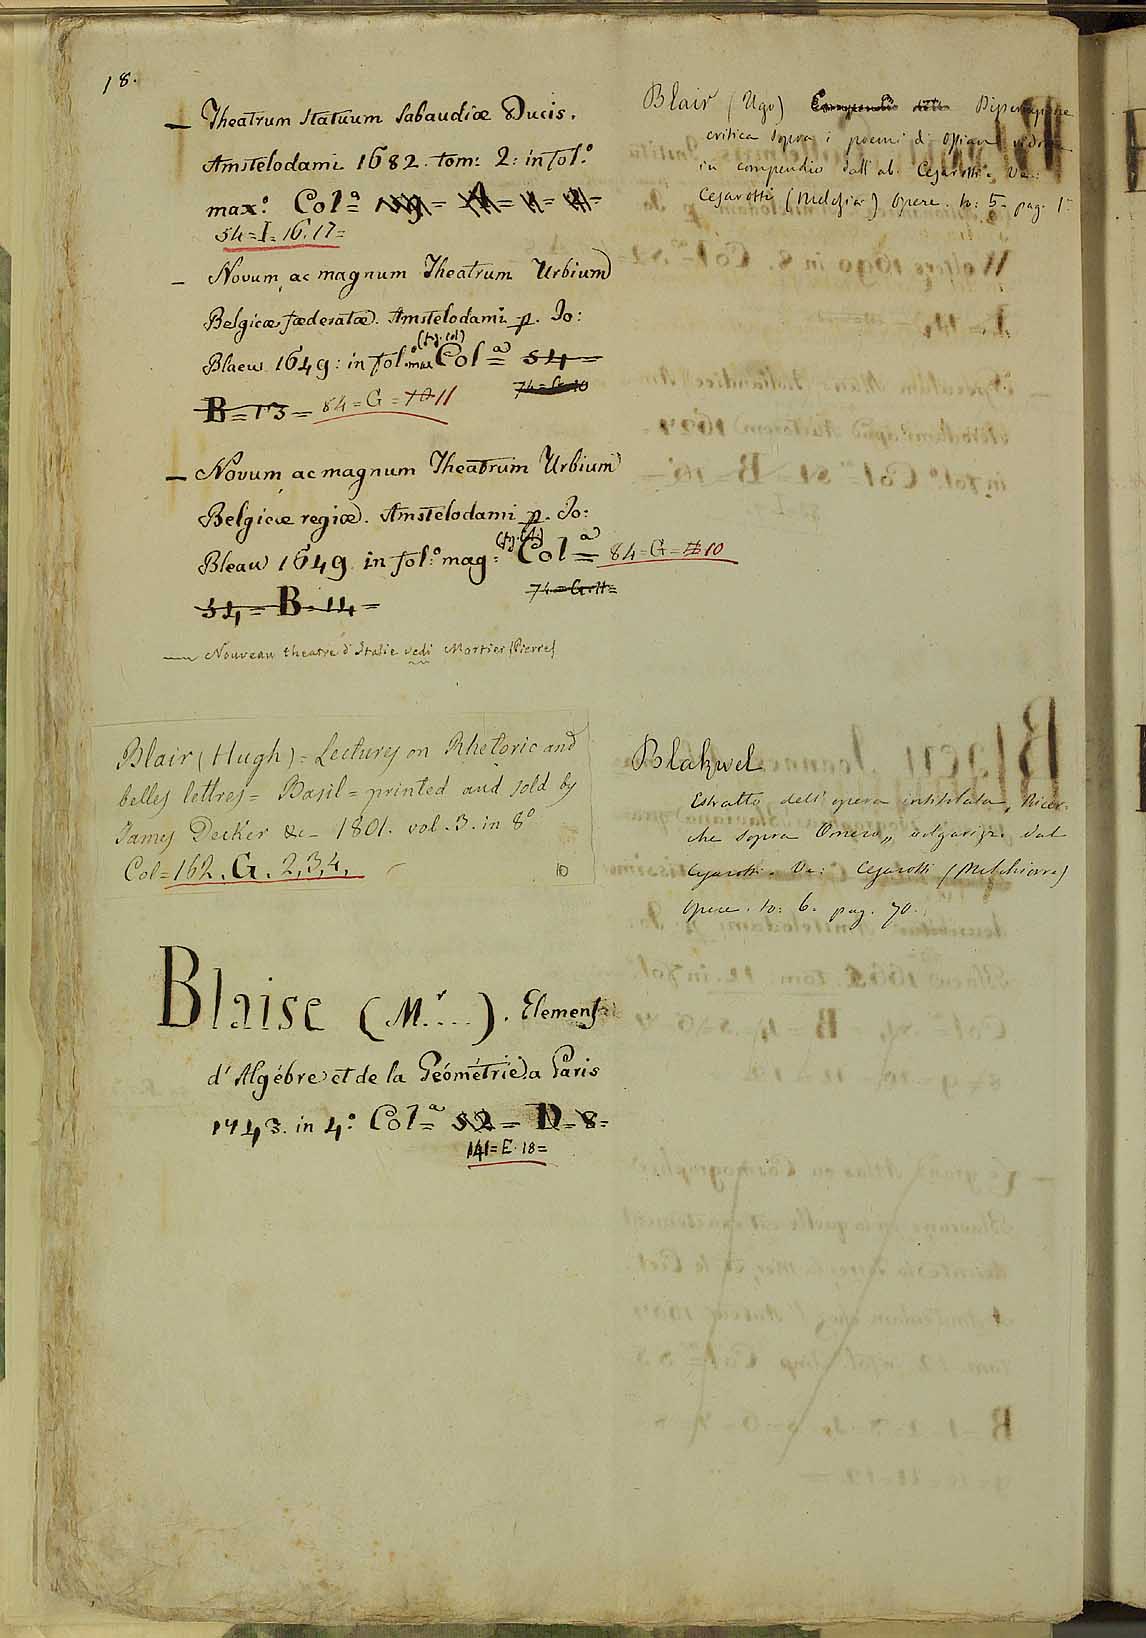 18.
— Theatrum Statuum Sabaudiæ Ducis.
Amstelodami 1682. tom: 2: in fol.º
max.º Colª=
54=I=16.17=
— Novum ac magnum Theatrum Urbium
Belgicæ fœderatæ. Amstelodami p. Jo:
(fig. col)
Blaeu 1649: in fol.º max Colª= 54=
74=G=10
B=13= 84=G=10 11
— Novum ac magnum Theatrum Urbium
Belgicæ regiæ. Amstelodami p. Jo:
Bleau 1649. in fol:º mag: Colª= 84=G= 10
74=G.11=
54=B=14=
— Nouveau theatre d'Italie vedi Mortier (Pierre)
Blair (Hugh)= Lectures on Rhetoric and
belles lettres= Basil= printed and sold by
James Decker &c- 1801. vol. 3. in 8º
Col=162. G. 2,3,4.
10
Blaise (M.r....). Elemens
d'Algébre et de la Géométrie a Paris
1743. in 4:º Colª= 52= D=8=
141=E.18=
Blair (Ugo)
critica sopra i poemi di Ossian
in compendio dall'ab. Cesarotti. Ve:
Cesarotti (Melchior) Opere. to: 5. pag. 1.
Blakwel
Estratto dell'opera intitolata, Ricer-
che sopra Omero,, volgarizz. dal
Cesarotti. Ve: Cesarotti (Melchiorre)
Opere. to: 6. pag. 70.